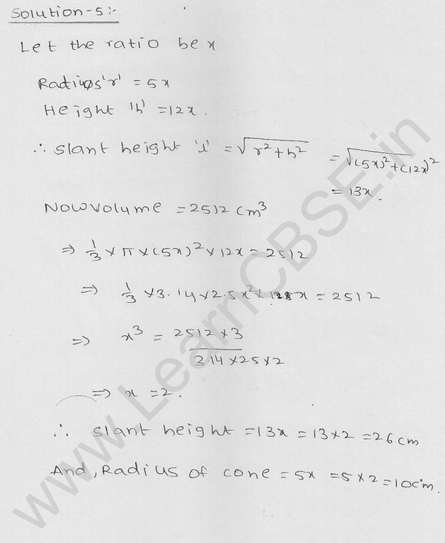 Solution-5:-
Let the ratio be x
Radius 'r' = 5x
Height 'h' = 12x.
∴ Slant height 'l' = √r²+h² = √(5x)²+(12x)²
= 13x.
Now volume = 2512 cm³
⇒ 1/3 × π × (5x)² × 12x = 2512
⇒ 1/3 × 3.14 × 25x² × 12x = 2512
⇒ x³ = 2512×3 / 314×25×2
⇒ x = 2.
∴ Slant height = 13x = 13×2 = 26 cm
And, Radius of cone = 5x = 5×2 = 10cm.
www.LearnCBSE.in